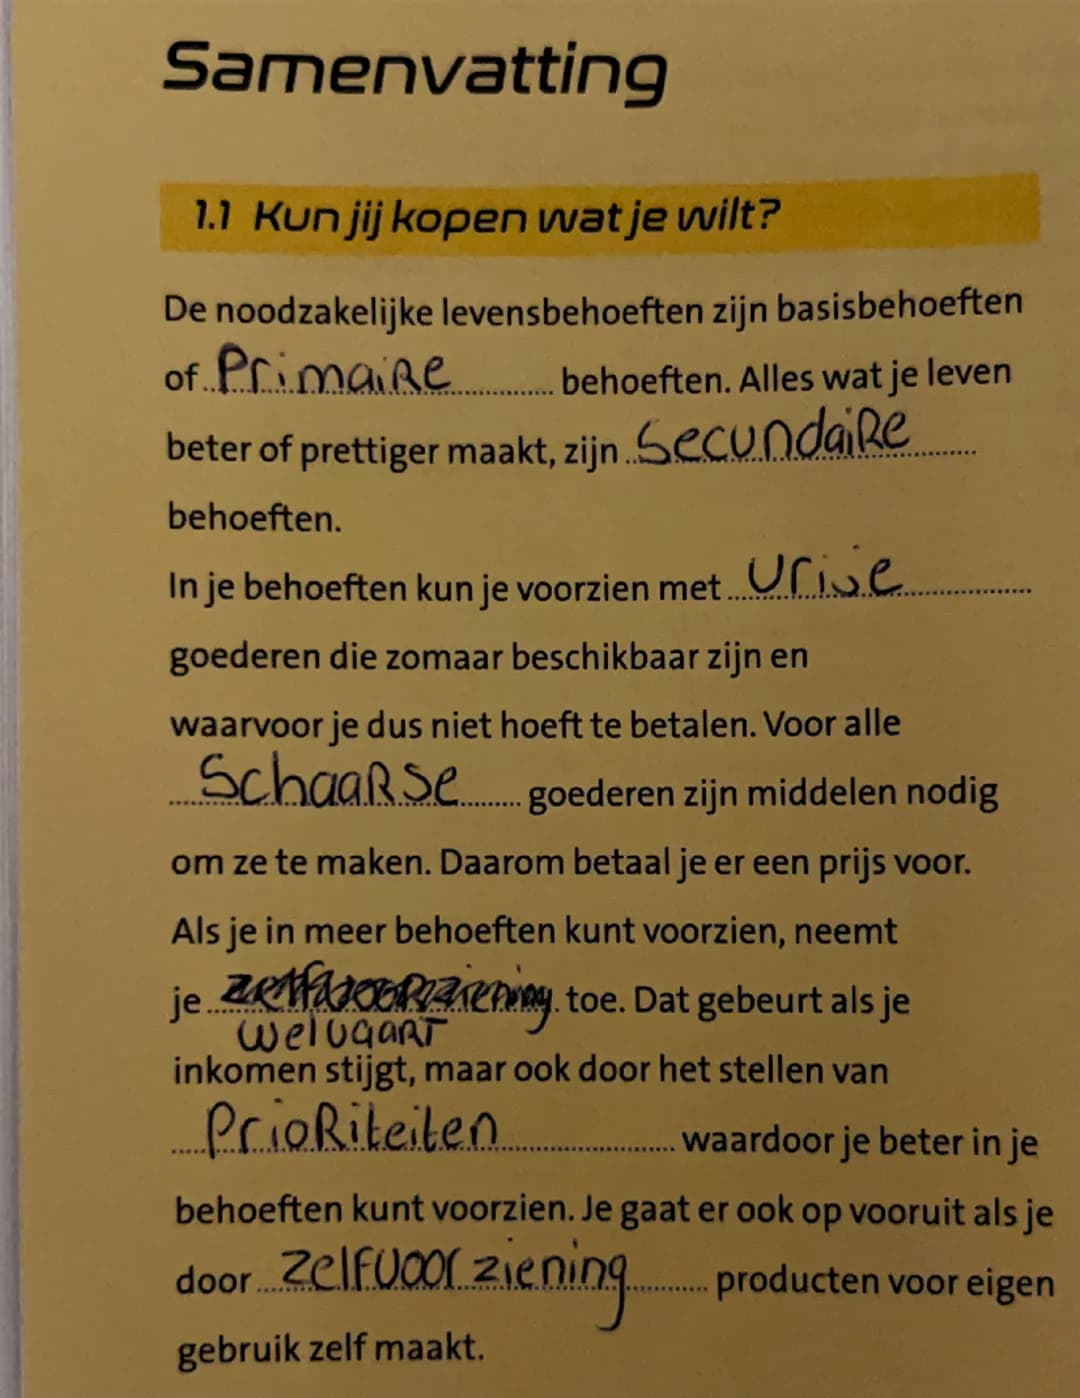 Samenvatting
1.1 Kun jij kopen wat je wilt?
De noodzakelijke levensbehoeften zijn basisbehoeften
of Primaire behoeften. Alles wat je leven
beter of prettiger maakt, zijn Secundaire
behoeften.
In je behoeften kun je voorzien met vrije
goederen die zomaar beschikbaar zijn en
waarvoor je dus niet hoeft te betalen. Voor alle
Schaarse goederen zijn middelen nodig
om ze te maken. Daarom betaal je er een prijs voor.
Als je in meer behoeften kunt voorzien, neemt
je zelfvoorziening toe. Dat gebeurt als je
welvaart
inkomen stijgt, maar ook door het stellen van
Prioriteiten waardoor je beter in je
behoeften kunt voorzien. Je gaat er ook op vooruit als je
door zelfvoorziening producten voor eigen
gebruik zelf maakt.